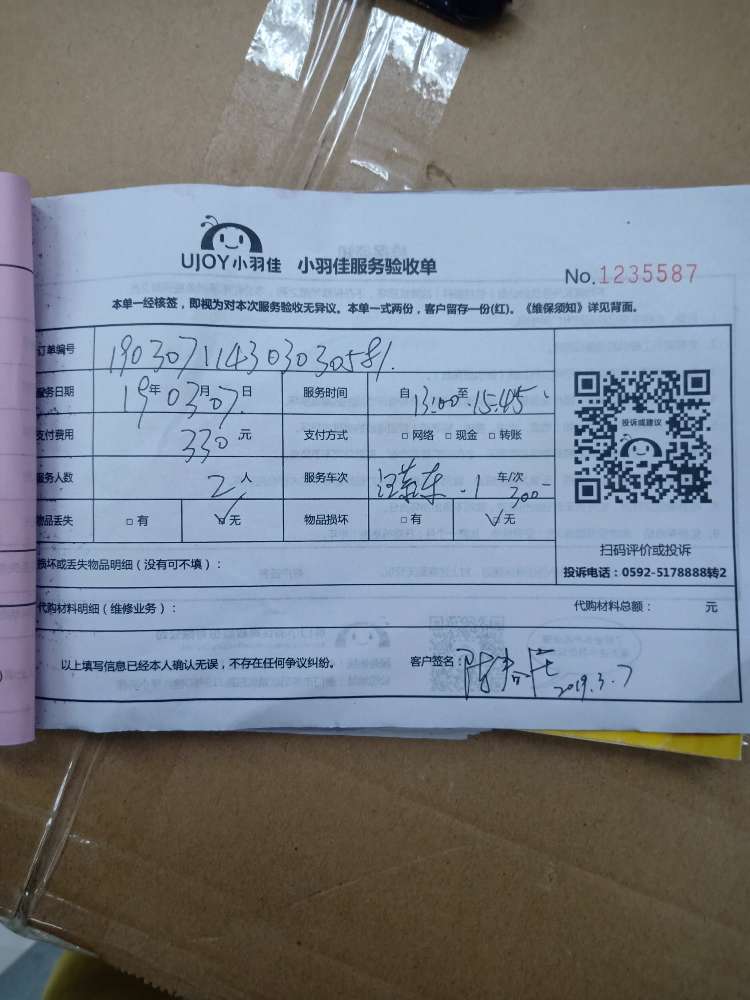 UJOY小羽佳 小羽佳服务验收单
No.1235587
本单一经核签，即视为对本次服务验收无异议。本单一式两份，客户留存一份(红)。《维保须知》详见背面。
订单编号 19030711430303058
服务日期 19年03月07日 服务时间 自13:00至15:45
支付费用 330元 支付方式 □ 网络 □ 现金 □ 转账
服务人数 2人 服务车次 1 车/次 300
物品丢失 □ 有 ☑ 无 物品损坏 □ 有 ☑ 无
投诉或建议
扫码评价或投诉
投诉电话：0592-5178888转2
损坏或丢失物品明细（没有可不填）：
代购材料明细（维修业务）： 代购材料总额： 元
以上填写信息已经本人确认无误，不存在任何争议纠纷。 客户签名： 2019.3.7